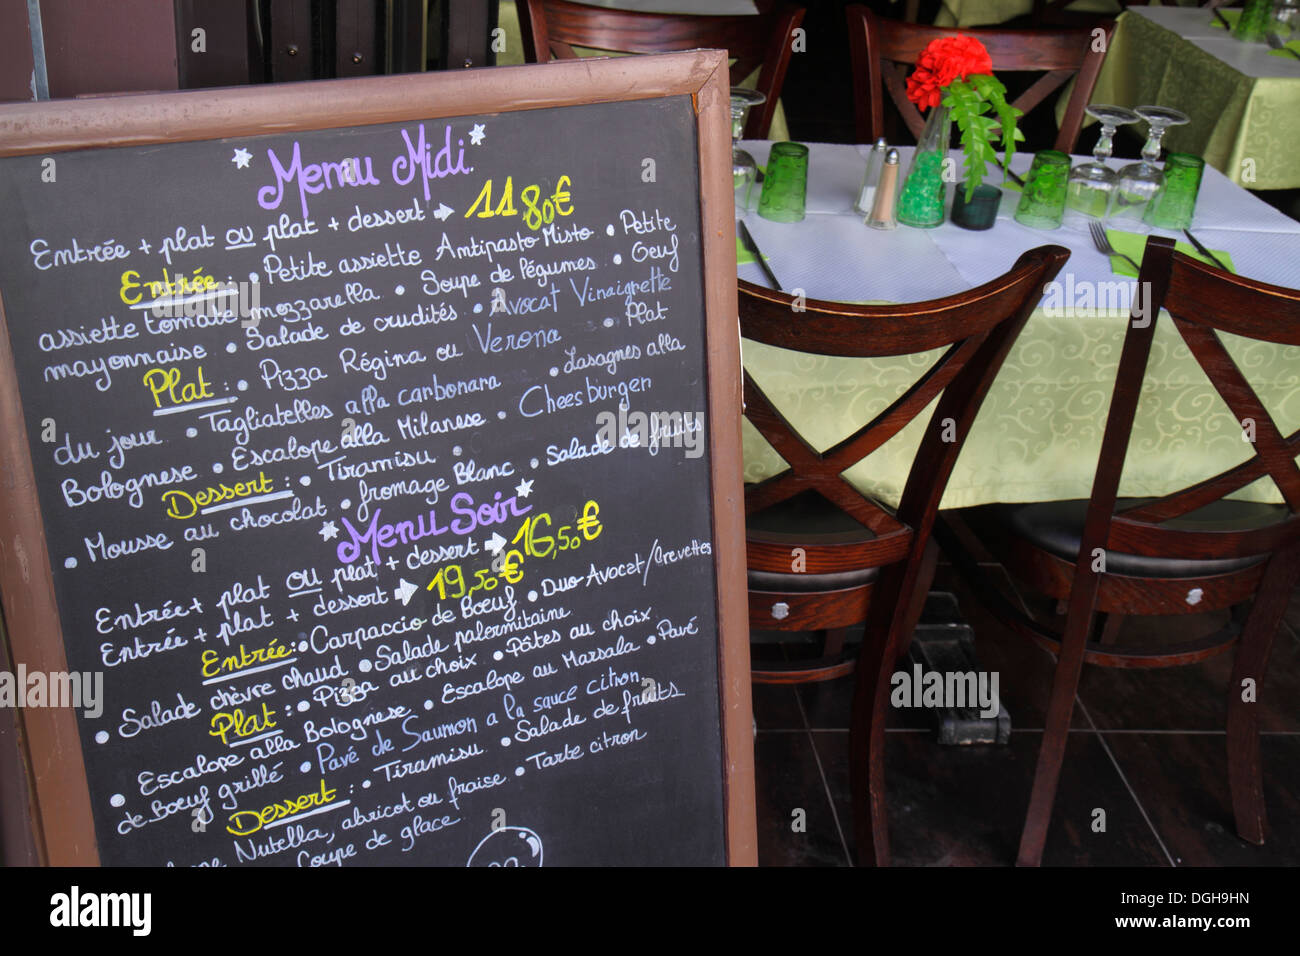 Menu Midi
Entrée + plat ou plat + dessert 11,80€
Entrée : • Petite assiette Antipasto Misto • Petite
assiette tomate mozzarella • Soupe de légumes • Oeuf
mayonnaise • Salade de crudités • Avocat Vinaigrette
Plat : • Pizza Régina ou Verona • Plat
du jour • Tagliatelles alla carbonara • Lasagnes alla
Bolognese • Escalope alla Milanese • Cheesburger
Dessert : • Tiramisu •
• Mousse au chocolat • fromage Blanc • Salade de fruits
Menu Soir
Entrée + plat ou plat + dessert 16,50€
Entrée + plat + dessert 19,50€
Entrée : • Carpaccio de Boeuf • Duo Avocat/Crevettes
• Salade chèvre chaud • Salade palermitaine
Plat : • Pizza au choix • Pâtes au choix
• Escalope alla Bolognese • Escalope au Marsala • Pavé
de Boeuf grillé • Pavé de Saumon a la sauce citron
Dessert : • Tiramisu • Salade de fruits
Nutella, abricot ou fraise • Tarte citron
Coupe de glace
alamy
Image ID: DGH9HN
www.alamy.com